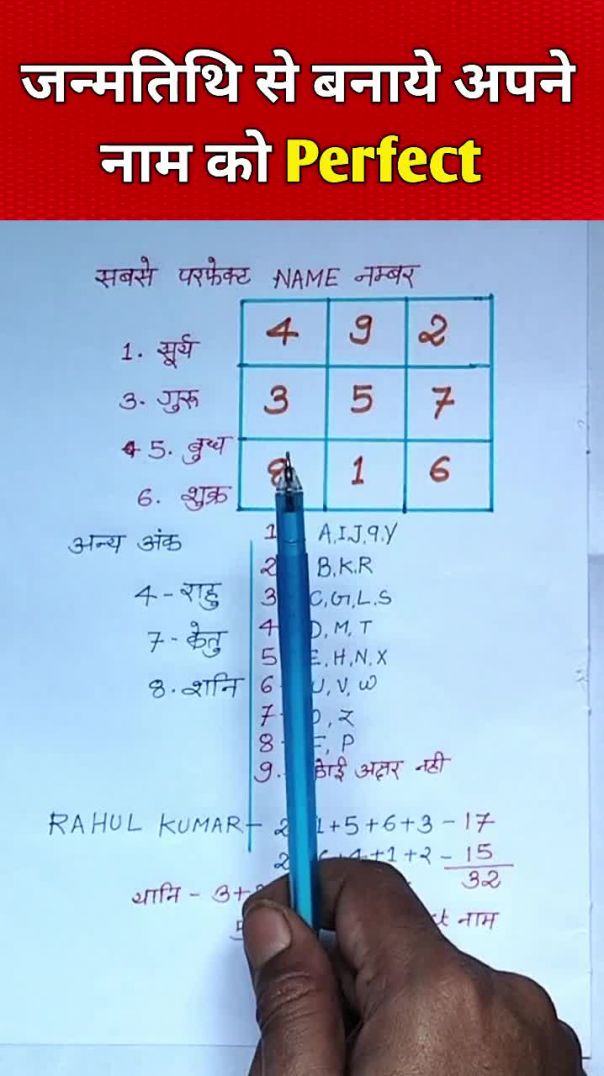 जन्मतिथि से बनाये अपने
नाम को Perfect
सबसे परफेक्ट NAME नम्बर
1. सूर्य
3. गुरु
5. बुध
6. शुक्र
4 9 2
3 5 7
8 1 6
अन्य अंक
4 - राहु
7 - केतु
8. शनि
1 A,I,J,q,Y
2 B,K,R
3 C,G,L,S
4 D,M,T
5 E,H,N,X
6 U,V,W
7 O,Z
8 F,P
9. कोई अक्षर नही
RAHUL KUMAR - 2 1+5+6+3 - 17
2 6+4+1+2 - 15
32
यानि - 3+
5 नाम